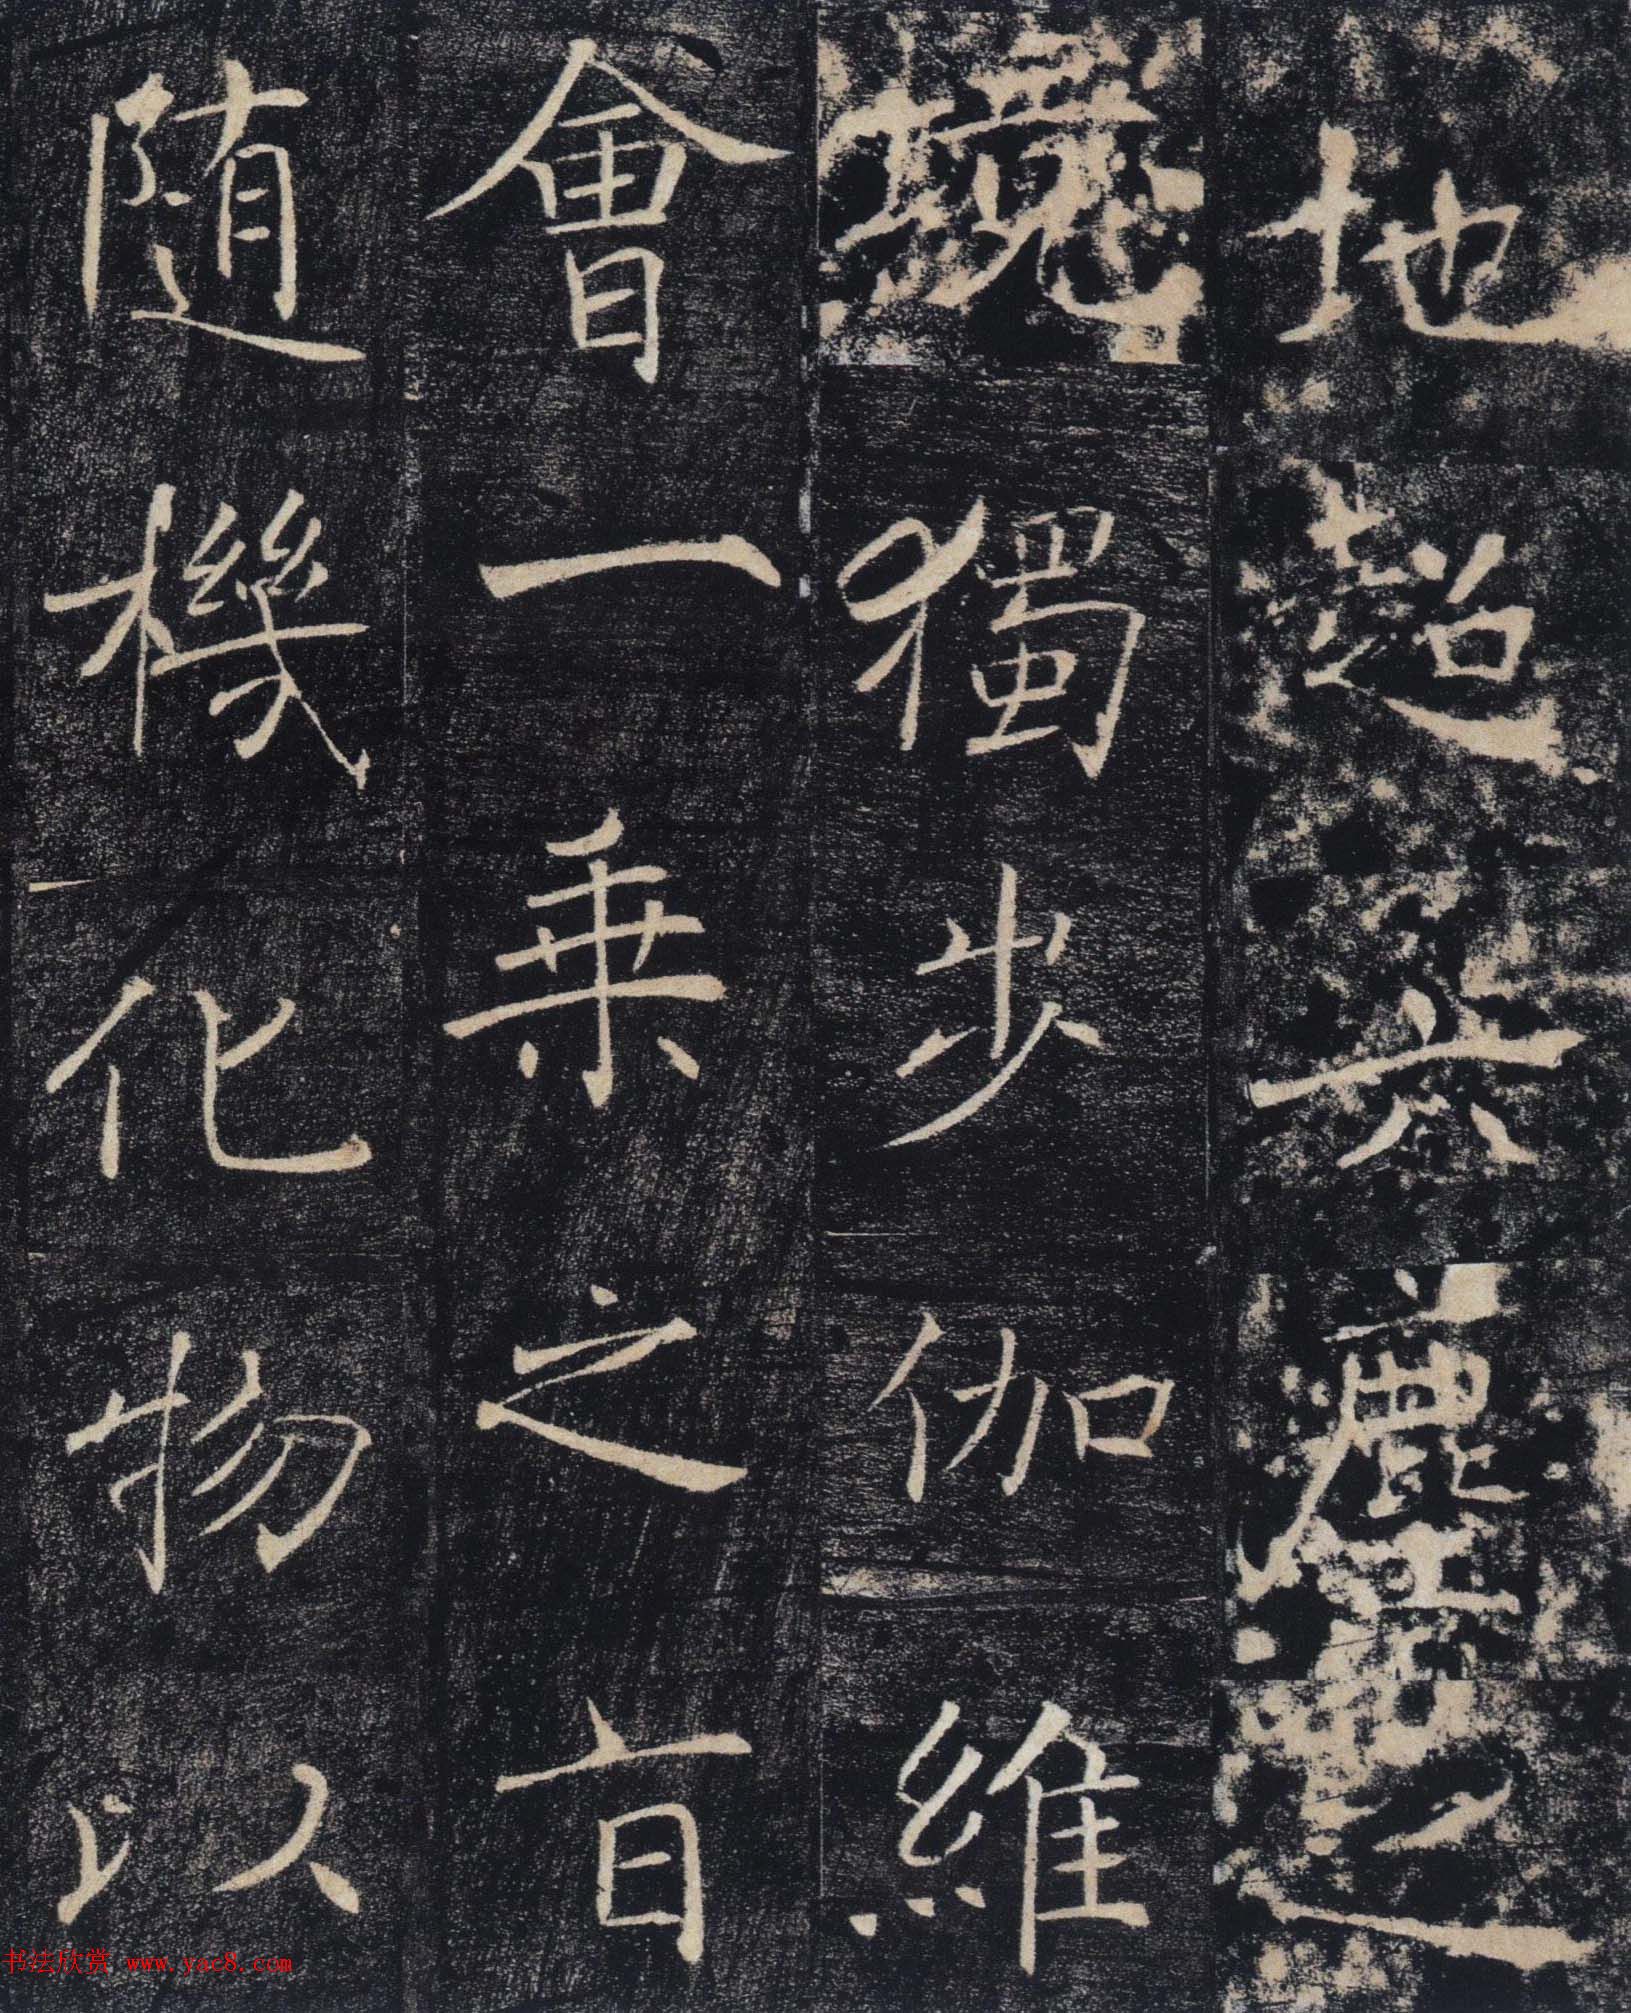 地超六塵之
境獨步伽維
會一乗之旨
随機化物以
书法欣赏 www.yac8.com